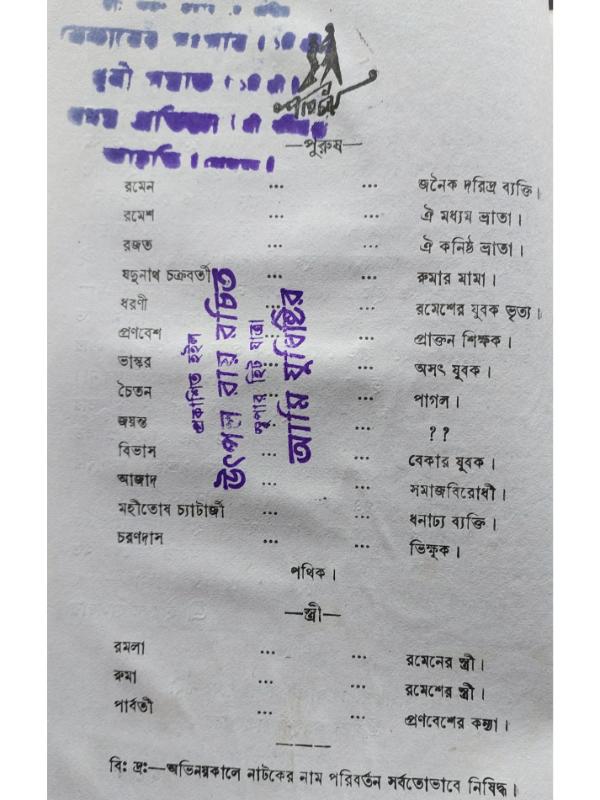 পরিচয়
—পুরুষ—
রমেন ... ... জনৈক দরিদ্র ব্যক্তি।
রমেশ ... ... ঐ মধ্যম ভ্রাতা।
রজত ... ... ঐ কনিষ্ঠ ভ্রাতা।
যদুনাথ চক্রবর্তী ... রুমার মামা।
ধরণী ... ... রমেশের যুবক ভৃত্য।
প্রণবেশ ... ... প্রাক্তন শিক্ষক।
ভাস্কর ... ... অসৎ যুবক।
চৈতন ... ... পাগল।
জয়ন্ত ... ... ??
বিভাস ... ... বেকার যুবক।
আজাদ ... ... সমাজবিরোধী।
মহীতোষ চ্যাটার্জী ... ... ধনাঢ্য ব্যক্তি।
চরণদাস ... ... ভিক্ষুক।
পথিক।
—স্ত্রী—
রমলা ... ... রমেনের স্ত্রী।
রুমা ... ... রমেশের স্ত্রী।
পার্বতী ... ... প্রণবেশের কন্যা।
বিঃ দ্রঃ—অভিনয়কালে নাটকের নাম পরিবর্তন সর্বতোভাবে নিষিদ্ধ।
প্রকাশিত হইল
উৎপল রায় রচিত
সুপার হিট যাত্রা
আমি যুধিষ্ঠির